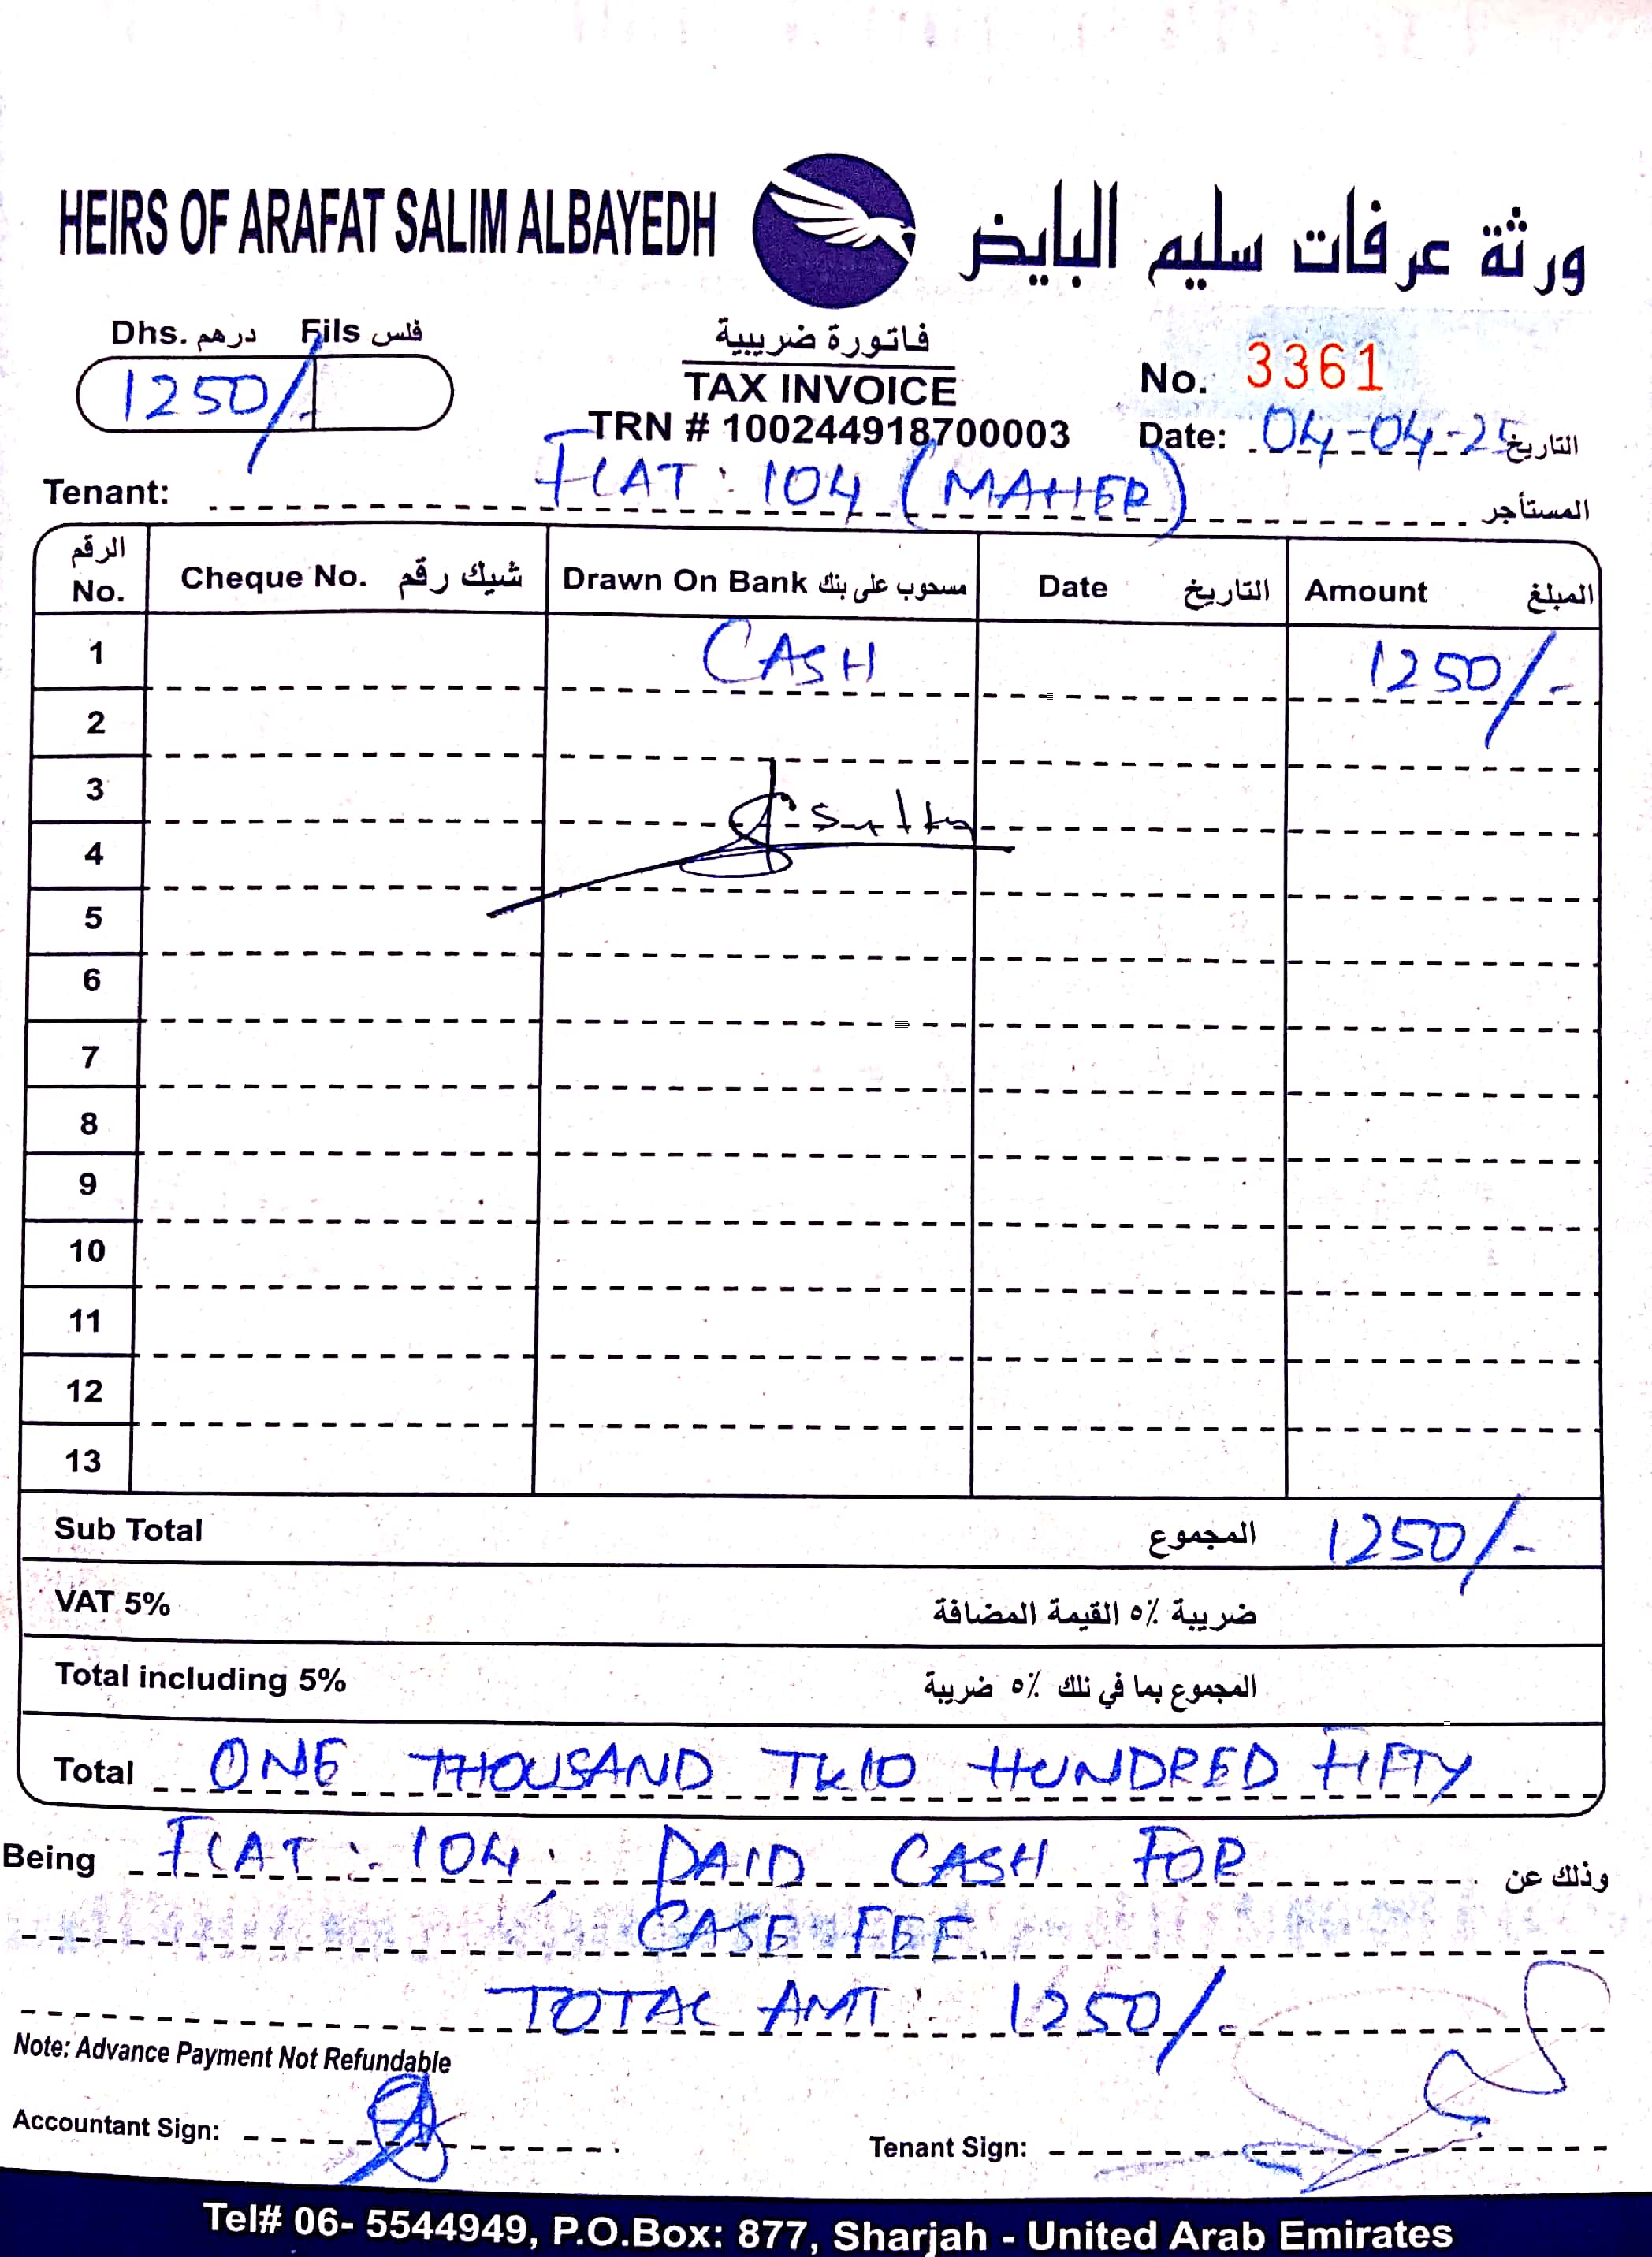 HEIRS OF ARAFAT SALIM ALBAYEDH ورثة عرفات سليم البايض
Dhs. درهم Fils فلس
1250/-
فاتورة ضريبية
TAX INVOICE
TRN # 100244918700003
No. 3361
Date: 04-04-25 التاريخ
Tenant: FLAT: 104 (MAHER) المستأجر
الرقم No. Cheque No. شيك رقم Drawn On Bank مسحوب على بنك Date التاريخ Amount المبلغ
1 CASH 1250/-
2
3
4
5
6
7
8
9
10
11
12
13
Sub Total المجموع 1250/-
VAT 5% ضريبة ٥٪ القيمة المضافة
Total including 5% المجموع بما في ذلك ٥٪ ضريبة
Total ONE THOUSAND TWO HUNDRED FIFTY
Being FLAT:- 104; PAID CASH FOR وذلك عن
CASE FEE.
TOTAL AMT: 1250/-
Note: Advance Payment Not Refundable
Accountant Sign:
Tenant Sign:
Tel# 06- 5544949, P.O.Box: 877, Sharjah - United Arab Emirates